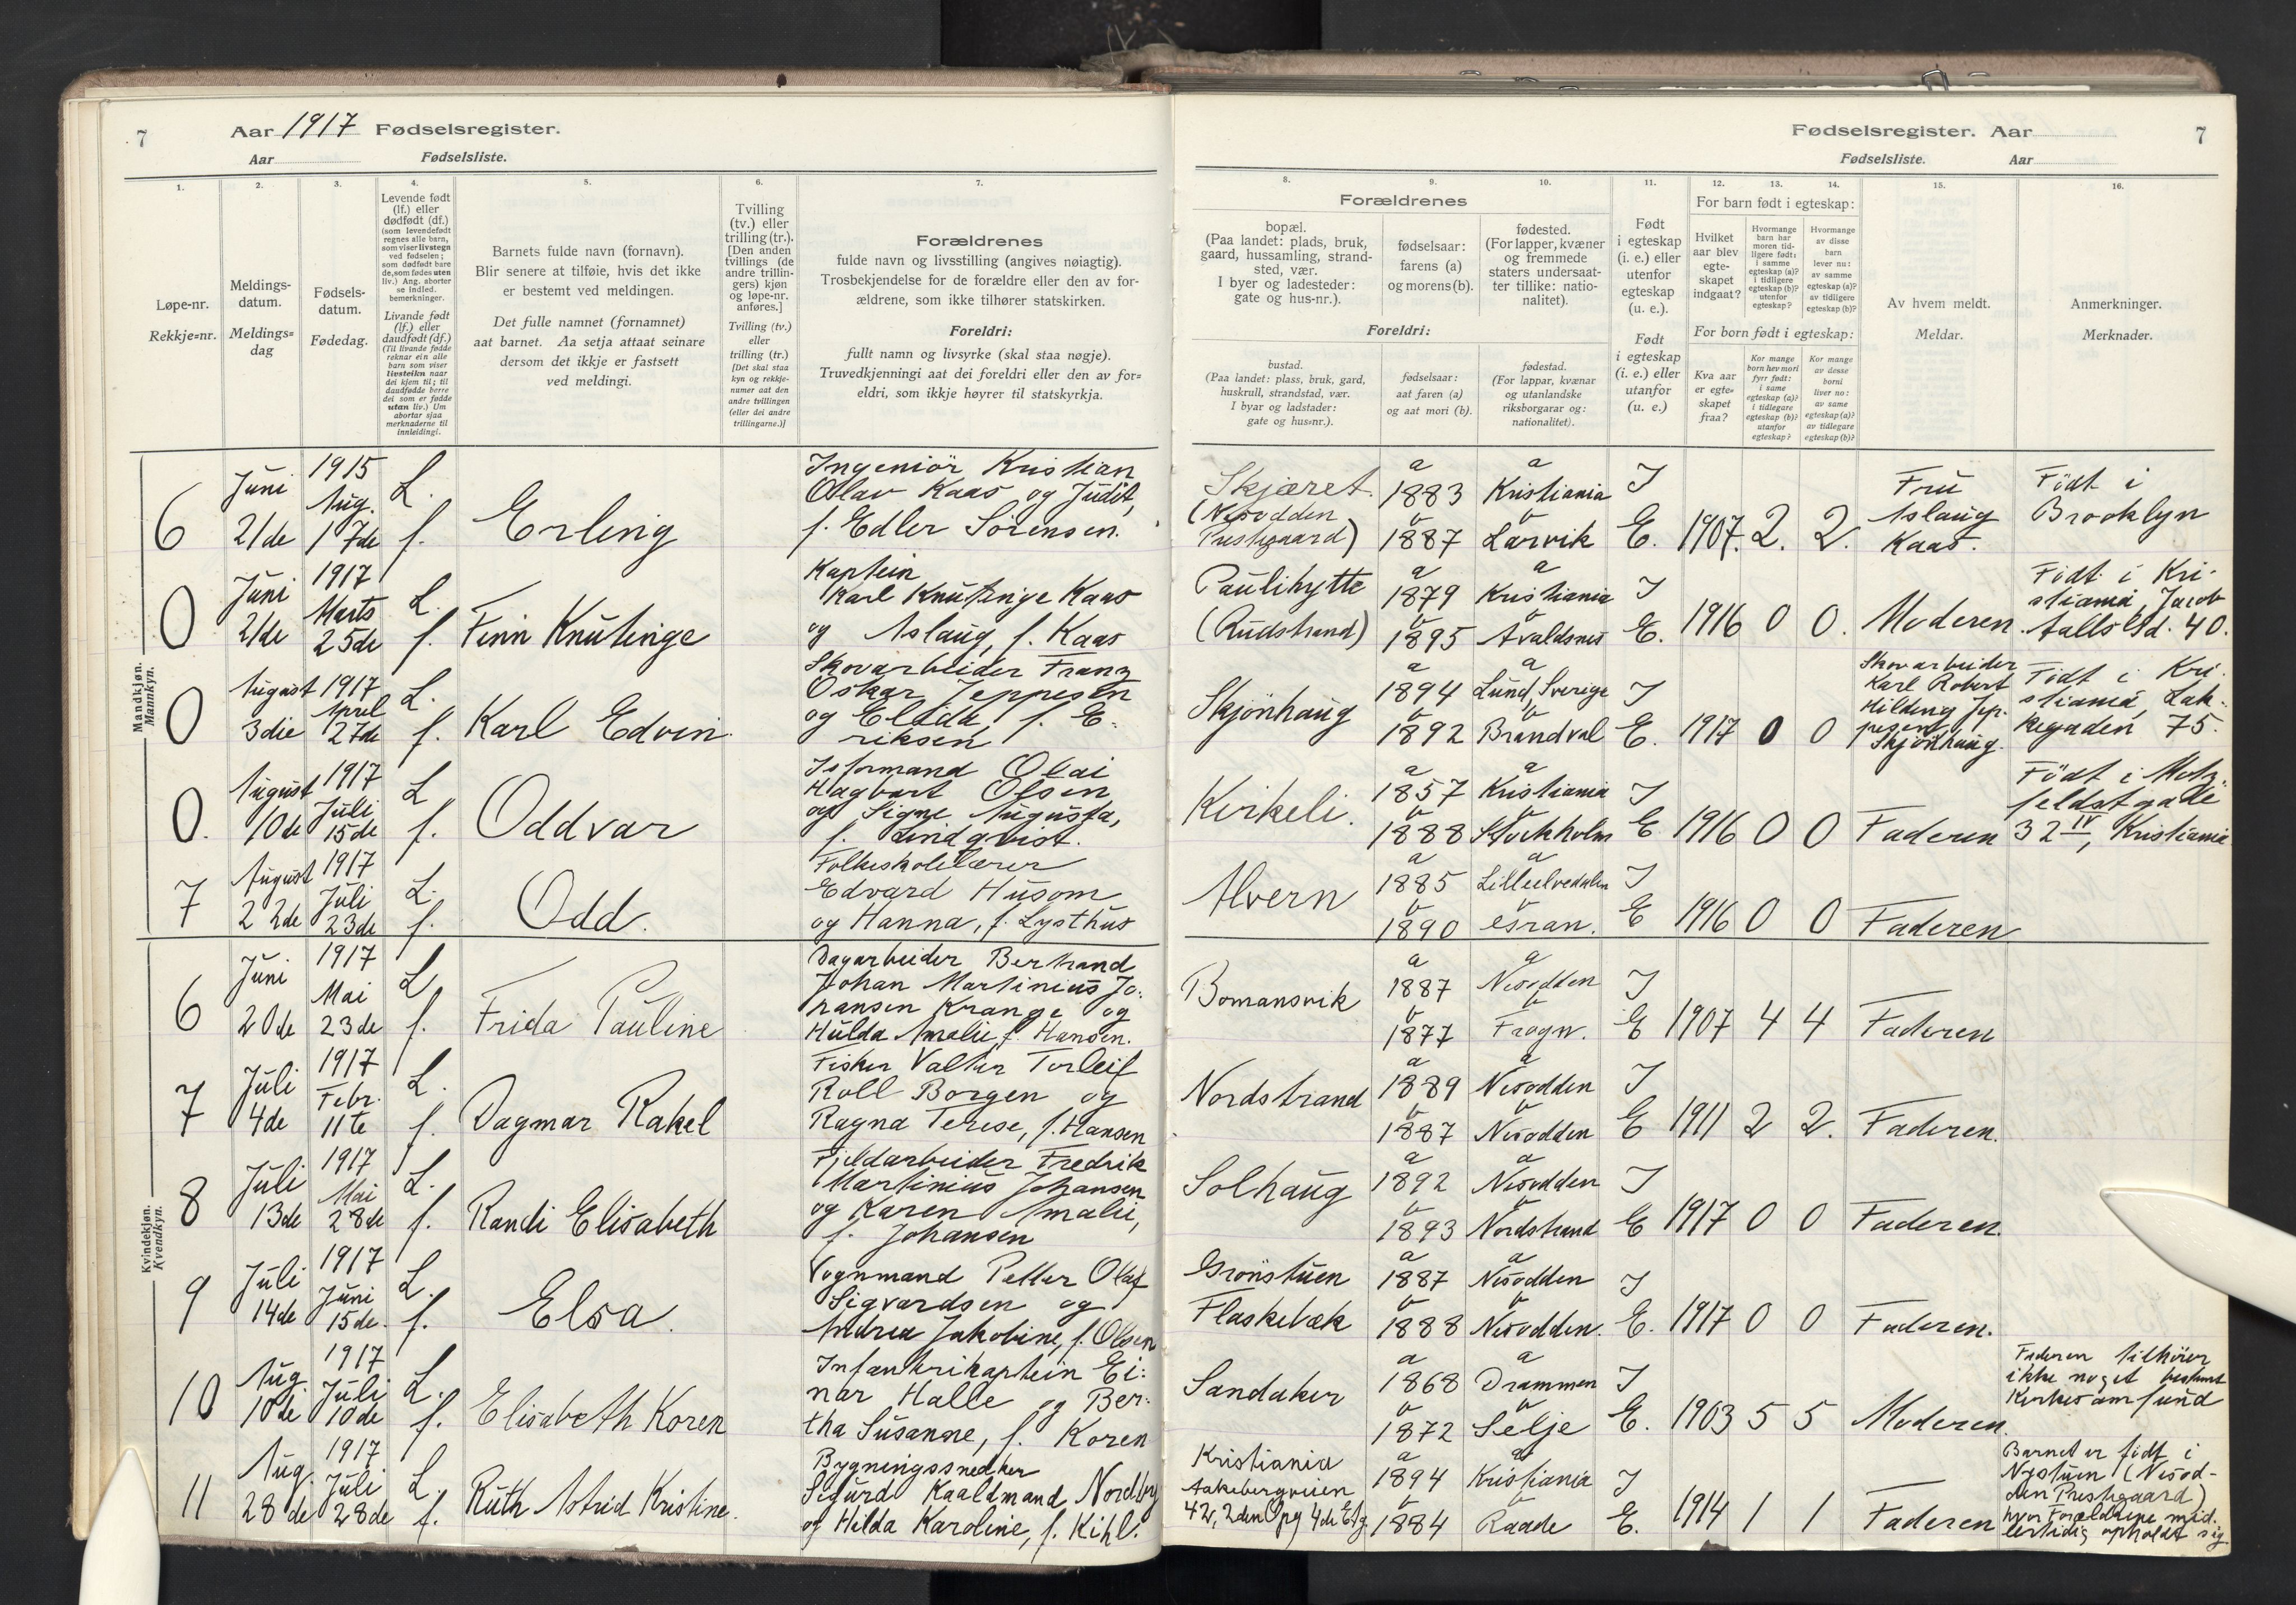 7
Aar 1917 Fødselsregister.
Aar Fødselsliste.
1.
2.
3.
4.
5.
6.
7.
Løpe-nr.
Rekkje=nr.
Meldings-
datum.
Meldings=
dag
Fødsels-
datum.
Fødedag.
Levende født
(lf.) eller
dødfødt (df.)
(som levendefødt
regnes alle barn,
som viser livstegn
ved fødselen;
som dødfødt bare
de, som fødes uten
liv.) Ang. aborter
se indled.
bemerkninger.
Livande født
(lf.) eller
daudfødt (df.)
(Til livande fødde
reknar ein alle
barn som viser
livsteikn naar
dei kjem til; til
daudfødde berre
dei som er fødde
utan liv.) Um
abortar sjaa
merknaderne til
innleidingi.
Barnets fulde navn (fornavn).
Blir senere at tilføie, hvis det ikke
er bestemt ved meldingen.
Det fulle namnet (fornamnet)
aat barnet. Aa setja attaat seinare
dersom det ikkje er fastsett
ved meldingi.
Tvilling
(tv.) eller
trilling (tr.).
[Den anden
tvillings (de
andre trillin-
gers) kjøn
og løpe-nr.
anføres.]
Tvilling (tv.)
eller
trilling (tr.)
[Det skal staa
kyn og rekkje-
numer aat den
andre tvillingen
(eller dei andre
trillingarne.)]
Forældrenes
fulde navn og livsstilling (angives nøiagtig).
Trosbekjendelse for de forældre eller den av for-
ældrene, som ikke tilhører statskirken.
Foreldri:
fullt namn og livsyrke (skal staa nøgje).
Truvedkjenningi aat dei foreldri eller den av for=
eldri, som ikkje høyrer til statskyrkja.
Mandkjøn.
Mannkyn.
6
Juni
21de
1915
Aug.
17de
L.
f.
Erling
Ingeniör Kristian
Olav Kaas og Judit,
f. Edler Sörensen.
0
Juni
21de
1917
Marts
25de
L.
f.
Finn Knutinge
Kaptein
Karl Knutinge Kaas
og Aslaug, f. Kaas
0
August
3die
1917
April
27de
L.
f.
Karl Edvin.
Skovarbeider Franz
Oskar Jeppesen
og Elida, f. E-
riksen
0.
August
10de
1917
Juli
15de
L
f.
Oddvar
Isformand Olai
Hagbart Olsen
og Signe Augusta,
f. Lindqvist.
7
August
22de
1917
Juli
23de
L.
f.
Odd.
Folkeskolelærer
Edvard Husom
og Hanna, f. Lysthus
Kvindekjøn.
Kvendkyn.
6
Juni
20de
1917
Mai
23de
L.
f.
Frida Pauline
Dagarbeider Bertrand
Johan Martinius Jo-
hansen Krange og
Hulda Amalie f. Hansen.
7
Juli
4de
1917
Febr.
11te
L.
f.
Dagmar Rakel
Fisker Valter Torleif
Roll Borgen og
Ragna Terese, f. Hansen
8
Juli
13de
1917
Mai
28de
L.
f.
Randi Elisabeth
Fjeldarbeider Fredrik
Martinius Johansen
og Karen Amalie,
f. Johansen
9
Juli
14de
1917
Juni
15de.
L.
f.
Elsa.
Vognmand Petter Olaf
Sigvardsen og
Andrea Jakobine, f. Olsen
10
Aug
10de
1917
Juli
10de
L.
f.
Elisabeth Koren
Infanterikaptein Ei-
nar Halle og Ber-
tha Susanne, f. Koren
11
Aug.
28de
1917
Juli
28de
L.
f.
Ruth Astrid Kristine.
Bygningssnedker
Sigurd Kaaldmand Nordby
og Hilda Karoline, f. Kihl.
Fødselsregister. Aar
7
Fødselsliste. Aar
8.
9.
10.
11.
12.
13.
14.
15.
16.
Forældrenes
bopæl.
(Paa landet: plads, bruk,
gaard, hussamling, strand-
sted, vær.
I byer og ladesteder:
gate og hus-nr.).
fødselsaar:
farens (a)
og morens (b).
fødested.
(For lapper, kvæner
og fremmede
staters undersaat-
ter tillike: natio-
nalitet).
Foreldri:
bustad.
(Paa landet: plass, bruk, gard,
huskrull, strandstad, vær.
I byar og ladstader:
gate og hus=nr.).
fødselsaar:
aat faren (a)
og aat mori (b).
fødestad.
(For lappar, kvænar
og utanlandske
riksborgarar og:
nationalitet).
Født
i egteskap
(i. e.) eller
utenfor
egteskap
(u. e.).
Født
i egteskap
(i. e.) eller
utanfor
(u. e.)
For barn født i egteskap:
Hvilket
aar blev
egte-
skapet
indgaat?
Hvormange
barn har
moren tid-
ligere født:
i samme
egteskap (a)?
i tidligere
egteskap (b)?
utenfor
egteskap?
Hvormange
av disse
barn
lever nu:
av samme
egteskap (a)?
av tidligere
egteskap (b)?
For born født i egteskap:
Kva aar
er egte=
skapet
fraa?
Kor mange
born hev mori
fyrr født:
i same
egteskap (a)?
i tidlegare
egteskap (b)?
utanfor
egteskap?
Kor mange
av desse
borni
liver no:
av same
egteskap (a)?
av tidlegare
egteskap (b)?
Av hvem meldt.
Meldar.
Anmerkninger.
Merknader.
Skjæret.
(Nesodden
Prestegaard)
a
1883
b
1887
a
Kristiania
b
Larvik
I
E.
1907.
2.
2.
Fru
Aslaug
Kaas.
Födt i
Brooklyn
Paulihytte
(Rudstrand)
a
1879
b
1895
a
Kristiania
b
Avaldsnes
I
E.
1916
0
0.
Moderen.
Födt i Kri-
stiania, Jacob
Aallsgd. 40.
Skjönhaug
a
1894
b
1892
a
Lund, Sverige
b
Brandval
I
E.
1917
0
0
Skovarbeider
Karl Robert
Hilding Jep-
pesen,
Skjönhaug.
Födt i Kri-
stiania, Lak-
kegaden 75.
Kirkeli.
a
1857
b
1888
a
Kristiania
b
Stockholm
I
E
1916
0
0
Faderen
Födt i Motz-
feldstgade
32 IV, Kristiania
Alvern
a
1885
b
1890
a
Lilleelvedalen
b
Gran.
I
E
1916
0
0
Faderen
Bomansvik
a
1887
b
1877
a
Nesodden
b
Frogn.
I
E
1907
4
4
Faderen
Nordstrand
a
1889
b
1887
a
Nesodden
b
Nesodden
I
E
1911
2
2.
Faderen.
Solhaug
a
1892
b
1893
a
Nesodden
b
Nordstrand
I
E
1917
0
0
Faderen.
Grönstuen
Flaskebæk
a
1887
b
1888
a
Nesodden
b
Nesodden.
I
E.
1917
0
0
Faderen.
Sandaker
a
1868
b
1872
a
Drammen
b
Selje
I
E.
1903
5
5
Moderen.
Faderen tilhörer
ikke noget bestemt
Kirkesamfund
Kristiania
Aakebergveien
42, 2den Opg 4de Etg.
a
1894
b
1884
a
Kristiania
b
Raade
I
E.
1914
1
1
Faderen
Barnet er födt i
Nystuen (Nesod-
den Prestegaard)
hvor Forældrene mid-
lertidig opholdt sig.